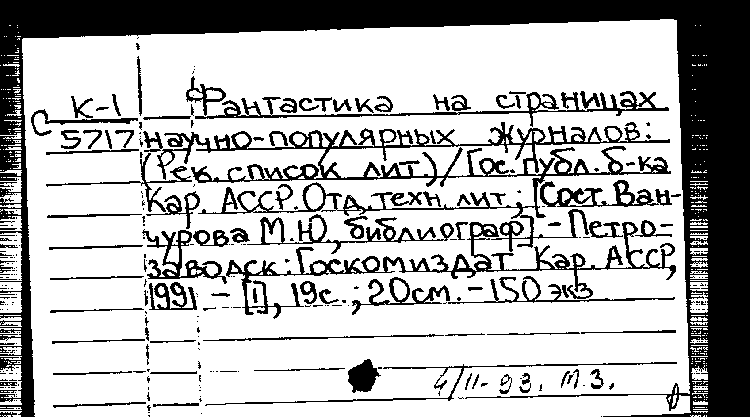 К-1 Фантастика на страницах
С 5717 научно-популярных журналов:
(Рек. список лит.) / Гос. публ. б-ка
Кар. АССР. Отд. техн. лит.; [Сост. Ван-
чурова М.Ю., библиограф]. - Петро-
заводск: Госкомиздат Кар. АССР,
1991 - [1], 19с.; 20см. - 150 экз
4/II-93. М.З.